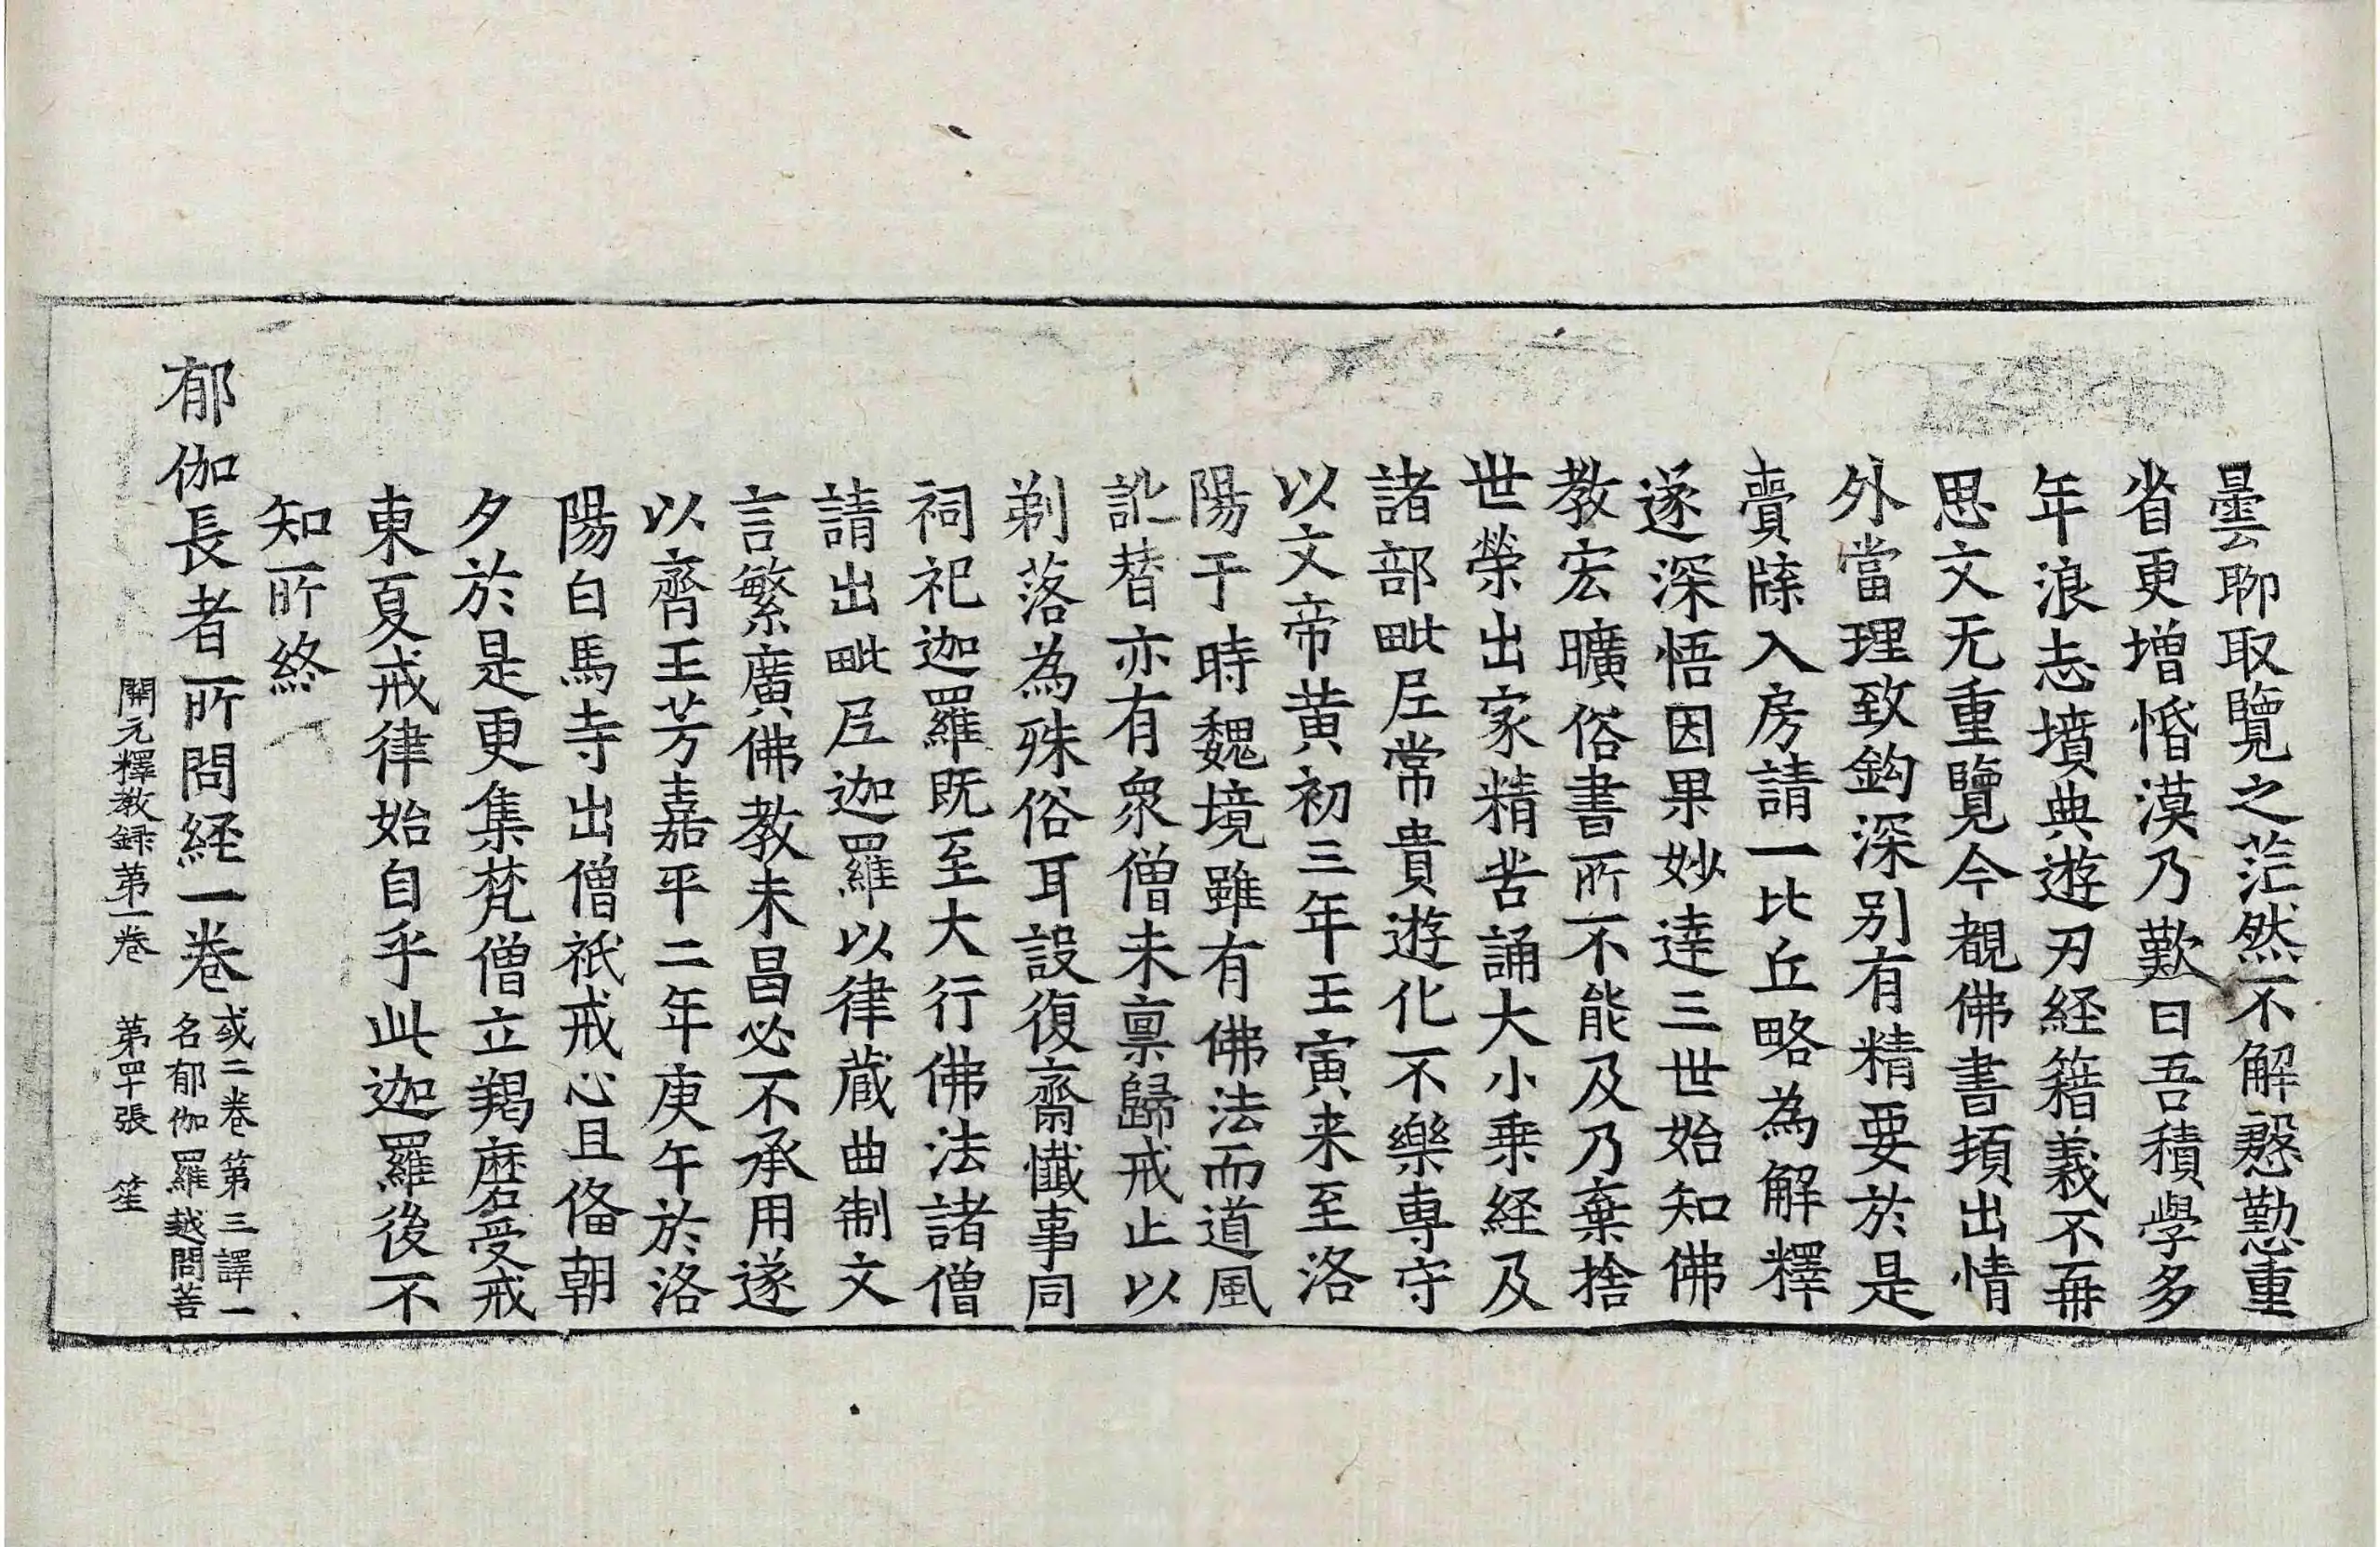 曇聊取覽之茫然不解慇懃重
省更增惛漠乃歎曰吾積學多
年浪志墳典遊刃経籍義不再
思文无重覽今覩佛書頂出情
外當理致鈎深別有精要於是
賷牒入房請一比丘略為解釋
遂深悟因果妙達三世始知佛
教宏曠俗書所不能及乃棄捨
世榮出家精苦誦大小乗経及
諸部毗尼常貴遊化不樂專守
以文帝黃初三年壬寅来至洛
陽于時魏境雖有佛法而道風
訛替亦有衆僧未禀歸戒止以
剃落為殊俗耳設復齋懺事同
祠祀迦羅既至大行佛法諸僧
請出毗尼迦羅以律蔵曲制文
言繁廣佛教未昌必不承用遂
以齊王芳嘉平二年庚午於洛
陽白馬寺出僧祇戒心且俻朝
夕於是更集梵僧立羯磨受戒
東夏戒律始自乎此迦羅後不
知所終
郁伽長者所問経一卷
或二卷第三譯一
名郁伽羅越問菩
開元釋教録第一卷　第四十張　笙